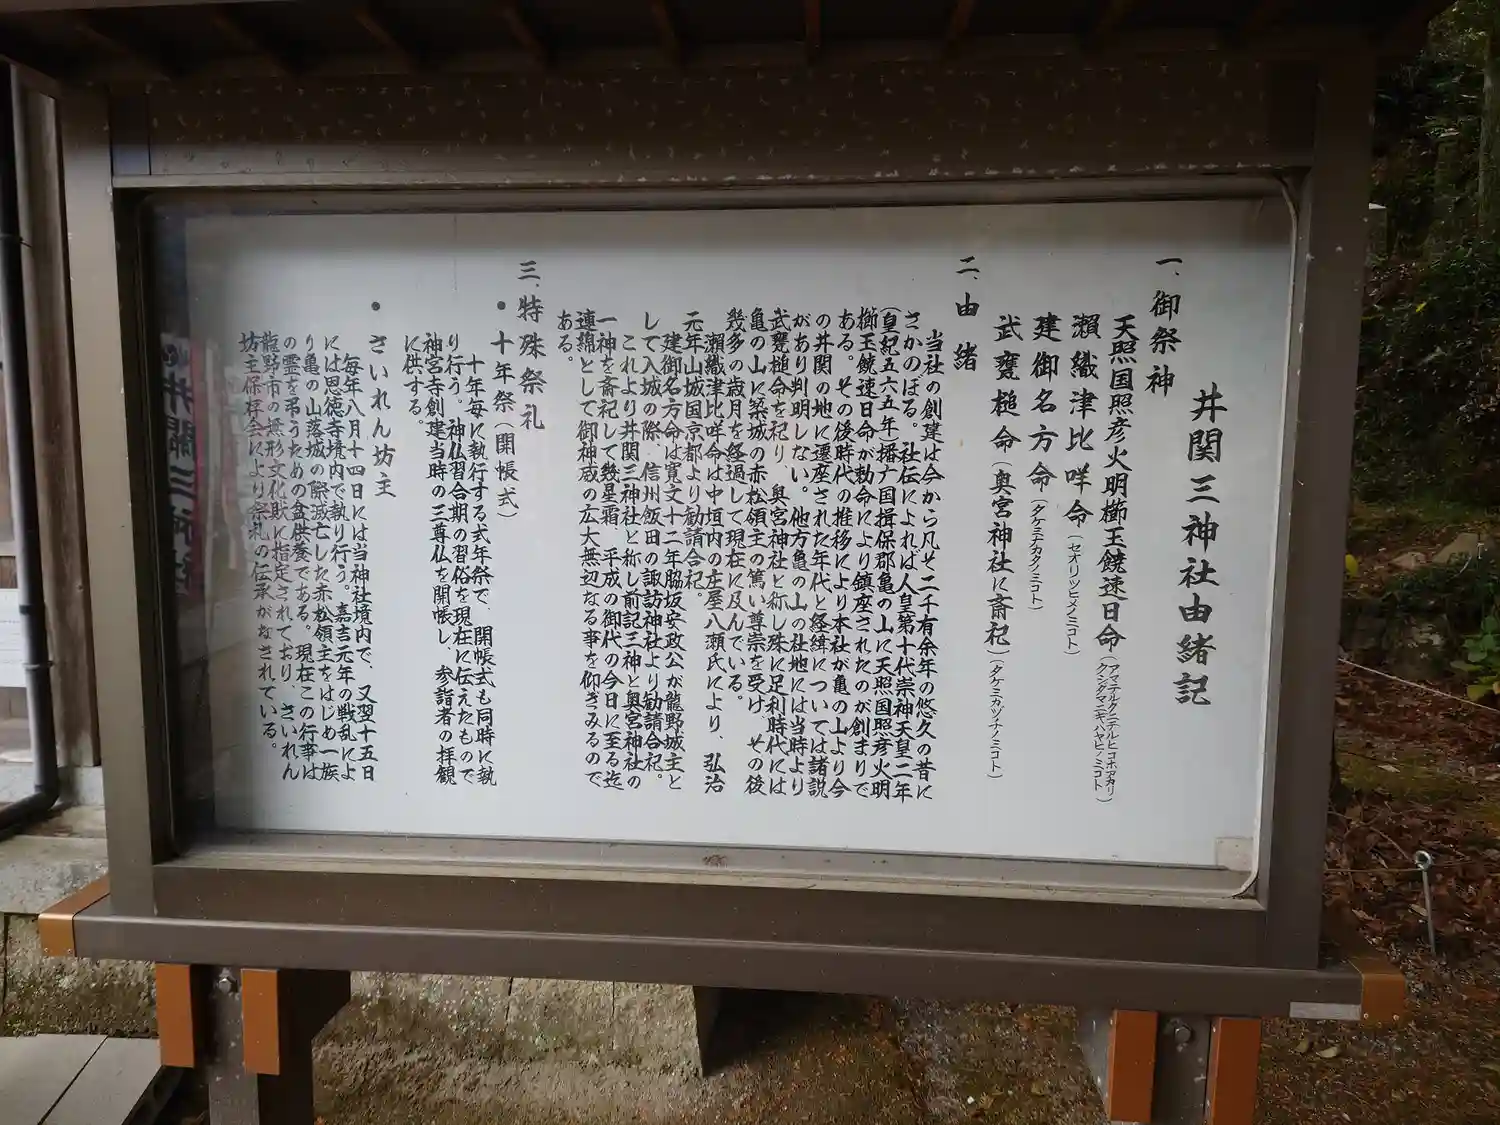 井関三神社由緒記
一、御祭神
天照国照彦火明櫛玉饒速日命(アマテルクニテルヒコホアカリクシタマニギハヤヒノミコト)
瀬織津比咩命(セオリツヒメノミコト)
建御名方命(タケミナカタノミコト)
武甕槌命(奥宮神社に斎祀)(タケミカツチノミコト)
二、由緒
当社の創建は今から凡そ二千有余年の悠久の昔に
さかのぼる。社伝によれば人皇第十代崇神天皇二年
(皇紀五六五年)播磨国揖保郡亀の山に天照国照彦火明
櫛玉饒速日命が勅命により鎮座されたのが創まりで
ある。その後時代の推移により本社が亀の山より今
の井関の地に遷座された年代と経緯については諸説
があり判明しない。他方亀の山の社地には当時より
武甕槌命を祀り、奥宮神社と称し殊に足利時代には
亀の山に築城の赤松領主の篤い尊崇を受け、その後
幾多の歳月を経過して現在に及んでいる。
瀬織津比咩命は中垣内の庄屋八瀬氏により、弘治
元年山城国京都より勧請合祀。
建御名方命は寛文十二年脇坂安政公が龍野城主と
して入城の際、信州飯田の諏訪神社より勧請合祀。
これより井関三神社と称し前記三神と奥宮神社の
一神を斎祀して幾星霜、平成の御代の今日に至る迄
連綿として御神威の広大無辺なる事を仰ぎみるので
ある。
三、特殊祭礼
・十年祭(開帳式)
十年毎に執行する式年祭で、開帳式も同時に執
り行う、神仏習合期の習俗を現在に伝えたもので
神宮寺創建当時の三尊仏を開帳し、参詣者の拝観
に供する。
・さいれん坊主
毎年八月十四日には当神社境内で、又翌十五日
には恩徳寺境内で執り行う。嘉吉元年の戦乱によ
り亀の山落城の際滅亡した赤松領主をはじめ一族
の霊を弔うための盆供養である。現在この行事は
龍野市の無形文化財に指定されており、さいれん
坊主保存会により祭礼の伝承がなされている。